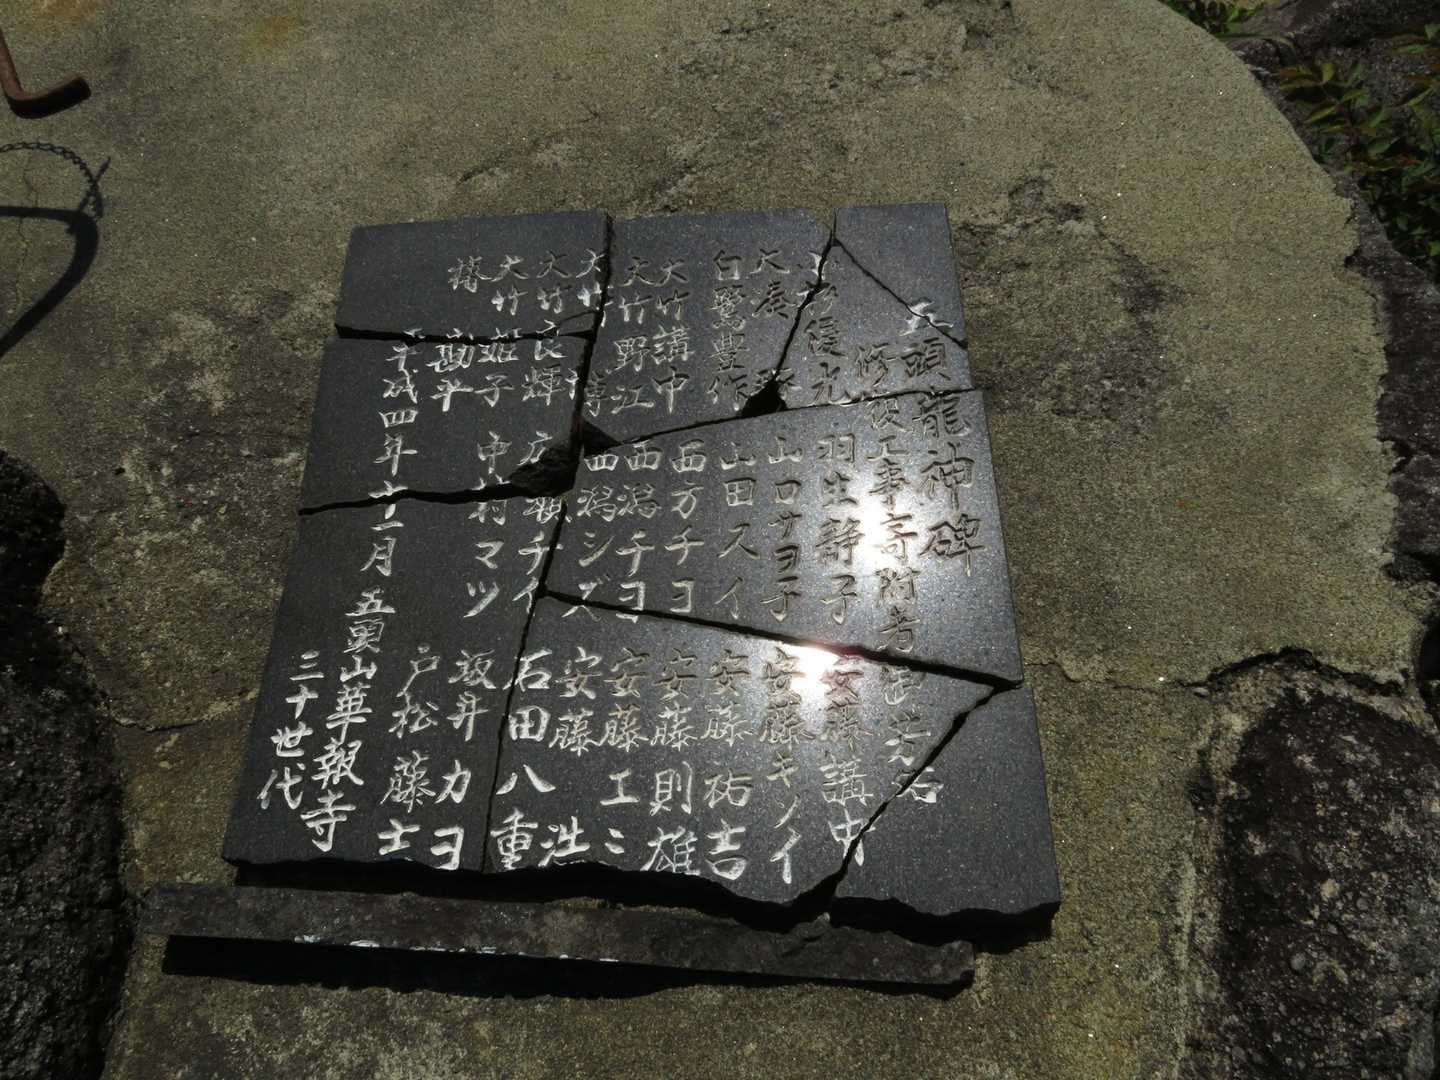 五頭龍神碑
修復工事寄附者御芳名
俊光 羽生静子 安藤講中
大湊 山口サヨ子 安藤キソイ
白鷺豊作 山田スイ 安藤祐吉
大竹講中 西方チヨ 安藤則雄
大竹野江 西潟チヨ 安藤エミ
大竹博 西潟シズ 安藤浩
大竹良輝 チイ 石田八重
大竹姫子 中村マツ 坂井カヨ
勘斗 戸松藤士
平成四年十一月 五頭山華報寺
三十世代